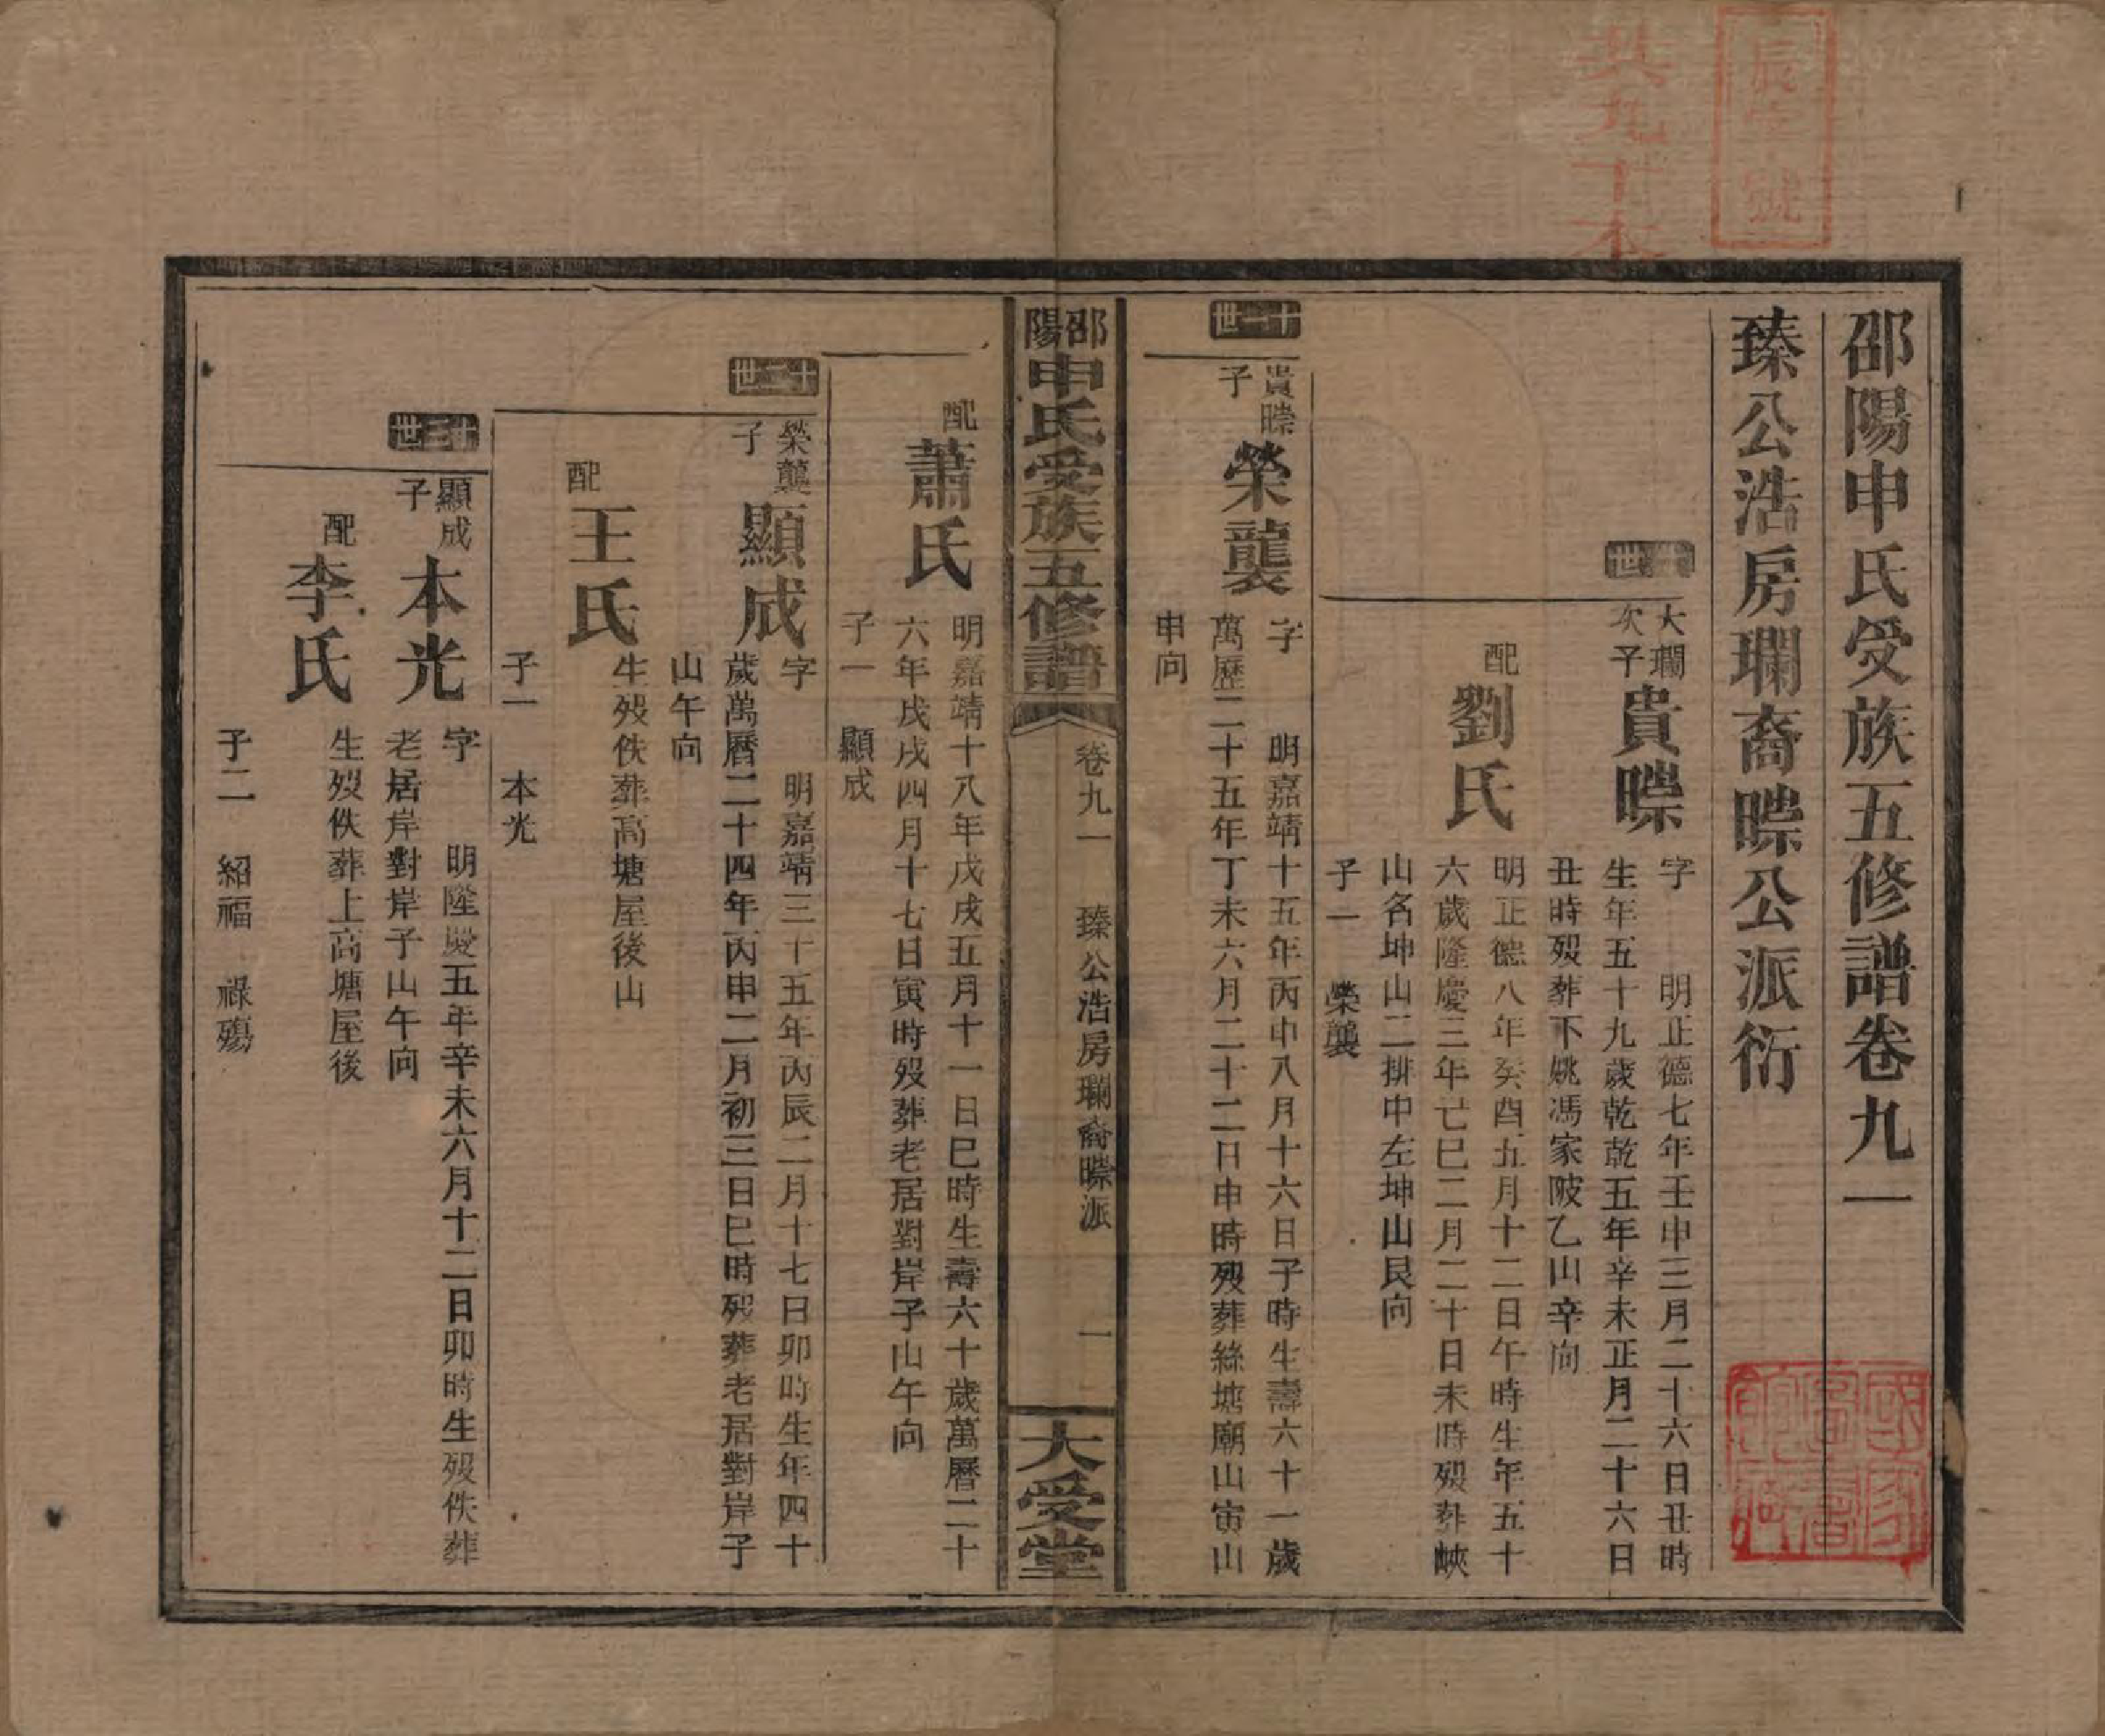 邵陽申氏受族五修譜卷九一
臻公浩房瓓裔㬢公派衍
世
大瓓
次子
貴㬢
字　明正德七年壬申三月二十六日丑時
生年五十九歲乾乾五年辛未正月二十六日
丑時歿葬下姚馮家陂乙山辛向
配
劉氏
明正德八年癸酉五月十二日午時生年五十
六歲隆慶三年己巳二月二十日未時歿葬峽
山名坤山二排中左坤山艮向
子一　榮襲
十一世
貴㬢
子
榮襲
字　明嘉靖十五年丙申八月十六日子時生壽六十一歲
萬歷二十五年丁未六月二十二日申時歿葬絲塘廟山寅山
申向
邵陽申氏受族五修譜
卷九一　臻公浩房瓓裔㬢派　一
大受堂
配
蕭氏
明嘉靖十八年戊戌五月十一日巳時生壽六十歲萬曆二十
六年戊戌四月十七日寅時歿葬老居對岸子山午向
子一　顯成
十二世
榮襲
子
顯成
字　明嘉靖三十五年丙辰二月十七日卯時生年四十
歲萬曆二十四年丙申二月初三日巳時歿葬老居對岸子
山午向
配
王氏
生歿佚葬高塘屋後山
子一　本光
十三世
顯成
子
本光
字　明隆慶五年辛未六月十二日卯時生歿佚葬
老居岸對岸子山午向
配
李氏
生歿佚葬上高塘屋後
子二　紹福　祿殤
共九十本